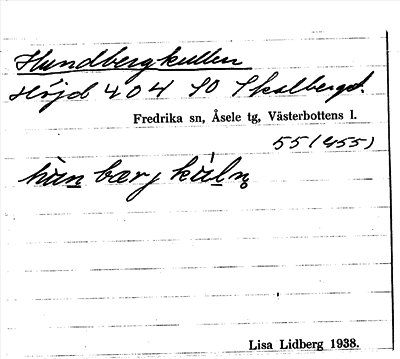 Hundbergkullen
Höjd 404 SO Skalberget.
Fredrika sn, Åsele tg, Västerbottens l.
55 (455)
Lisa Lidberg 1938.